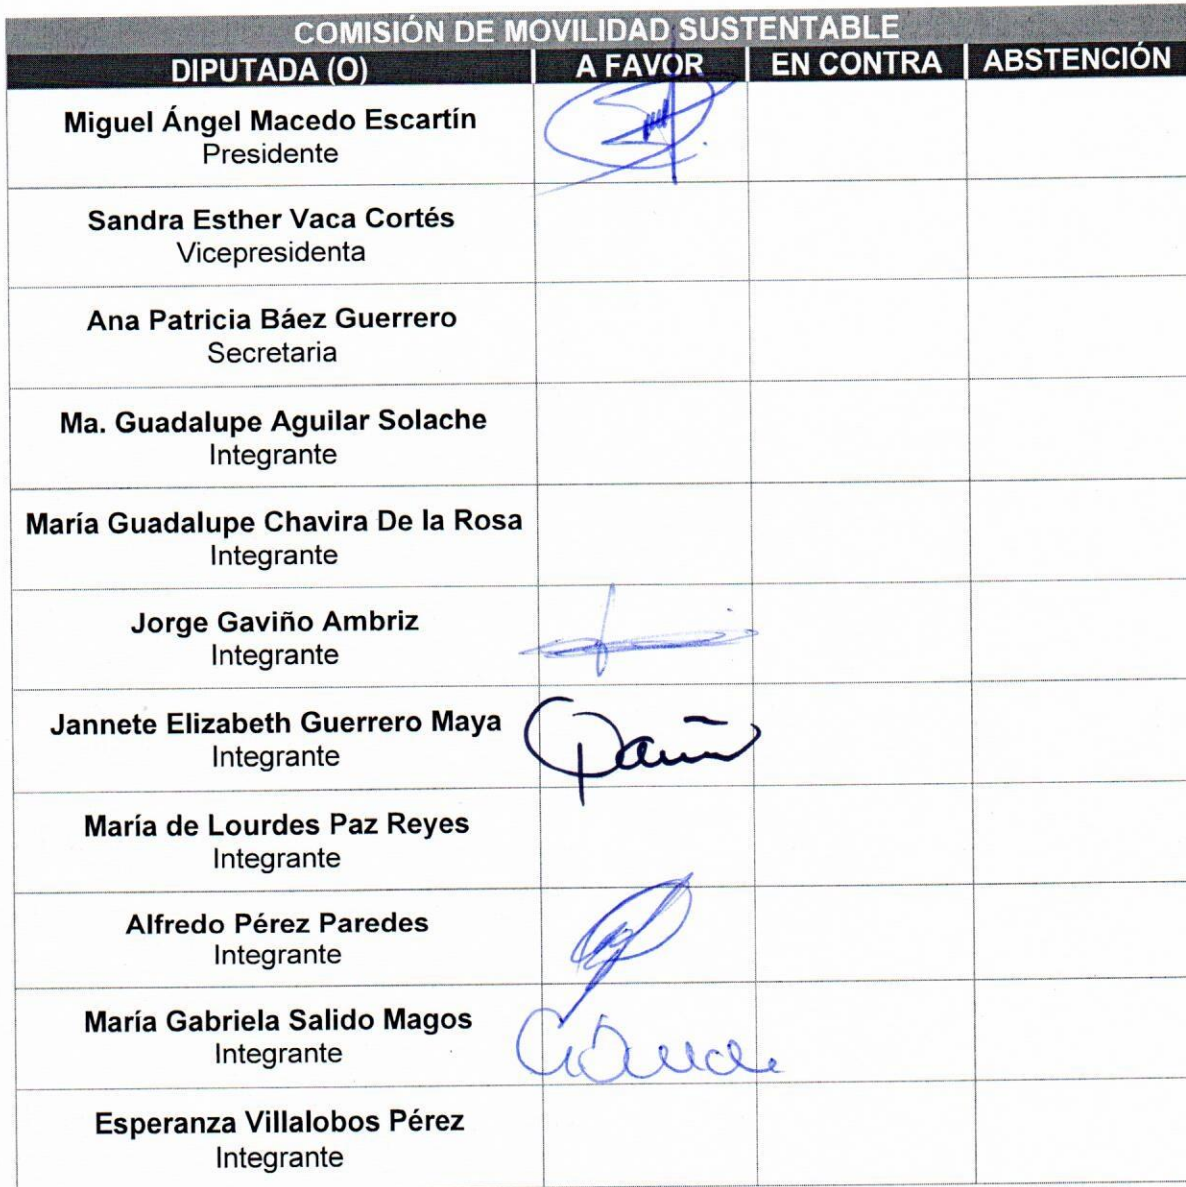 COMISIÓN DE MOVILIDAD SUSTENTABLE
DIPUTADA (O) A FAVOR EN CONTRA ABSTENCIÓN
Miguel Ángel Macedo Escartín
Presidente
Sandra Esther Vaca Cortés
Vicepresidenta
Ana Patricia Báez Guerrero
Secretaria
Ma. Guadalupe Aguilar Solache
Integrante
María Guadalupe Chavira De la Rosa
Integrante
Jorge Gaviño Ambriz
Integrante
Jannete Elizabeth Guerrero Maya
Integrante
María de Lourdes Paz Reyes
Integrante
Alfredo Pérez Paredes
Integrante
María Gabriela Salido Magos
Integrante
Esperanza Villalobos Pérez
Integrante